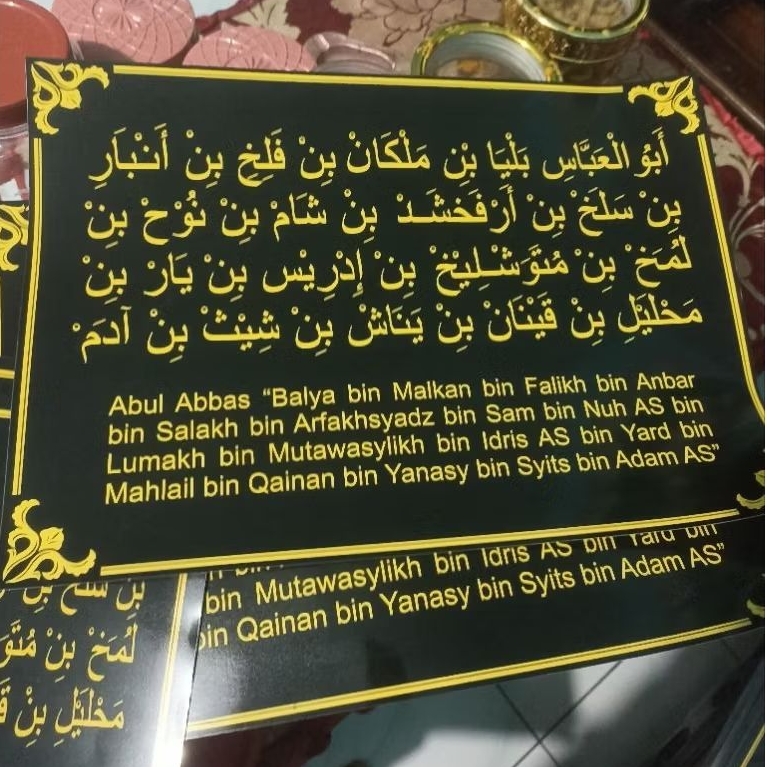 أَبُو الْعَبَّاسِ بَلْيَا بِن مَلْكَانْ بِنْ فَلِخِ بِنْ أَنْبَارِ
بِنْ سَلَخْ بِنْ أَرْفَخْشَـدْ بِنْ شَامْ بِنْ نُوْحْ بِنْ
لُمَخْ بِنْ مُتَوَشْـلِيْخْ بِنْ إِدْرِيْس بِنْ يَارْ بِنْ
مَحْلَيْلِ بِنْ قَيْنَانْ بِنْ يَنَاشْ بِنْ شِيْثْ بِنْ آدَمَ
Abul Abbas “Balya bin Malkan bin Falikh bin Anbar
bin Salakh bin Arfakhsyadz bin Sam bin Nuh AS bin
Lumakh bin Mutawasylikh bin Idris AS bin Yard bin
Mahlail bin Qainan bin Yanasy bin Syits bin Adam AS”
bin Mutawasylikh bin Idris AS bin Yard bin
bin Qainan bin Yanasy bin Syits bin Adam AS”
بِنْ سَلَخْ بِنْ
لُمَخْ بِنْ مُتَوَ
مَحْلَيْلِ بِنْ